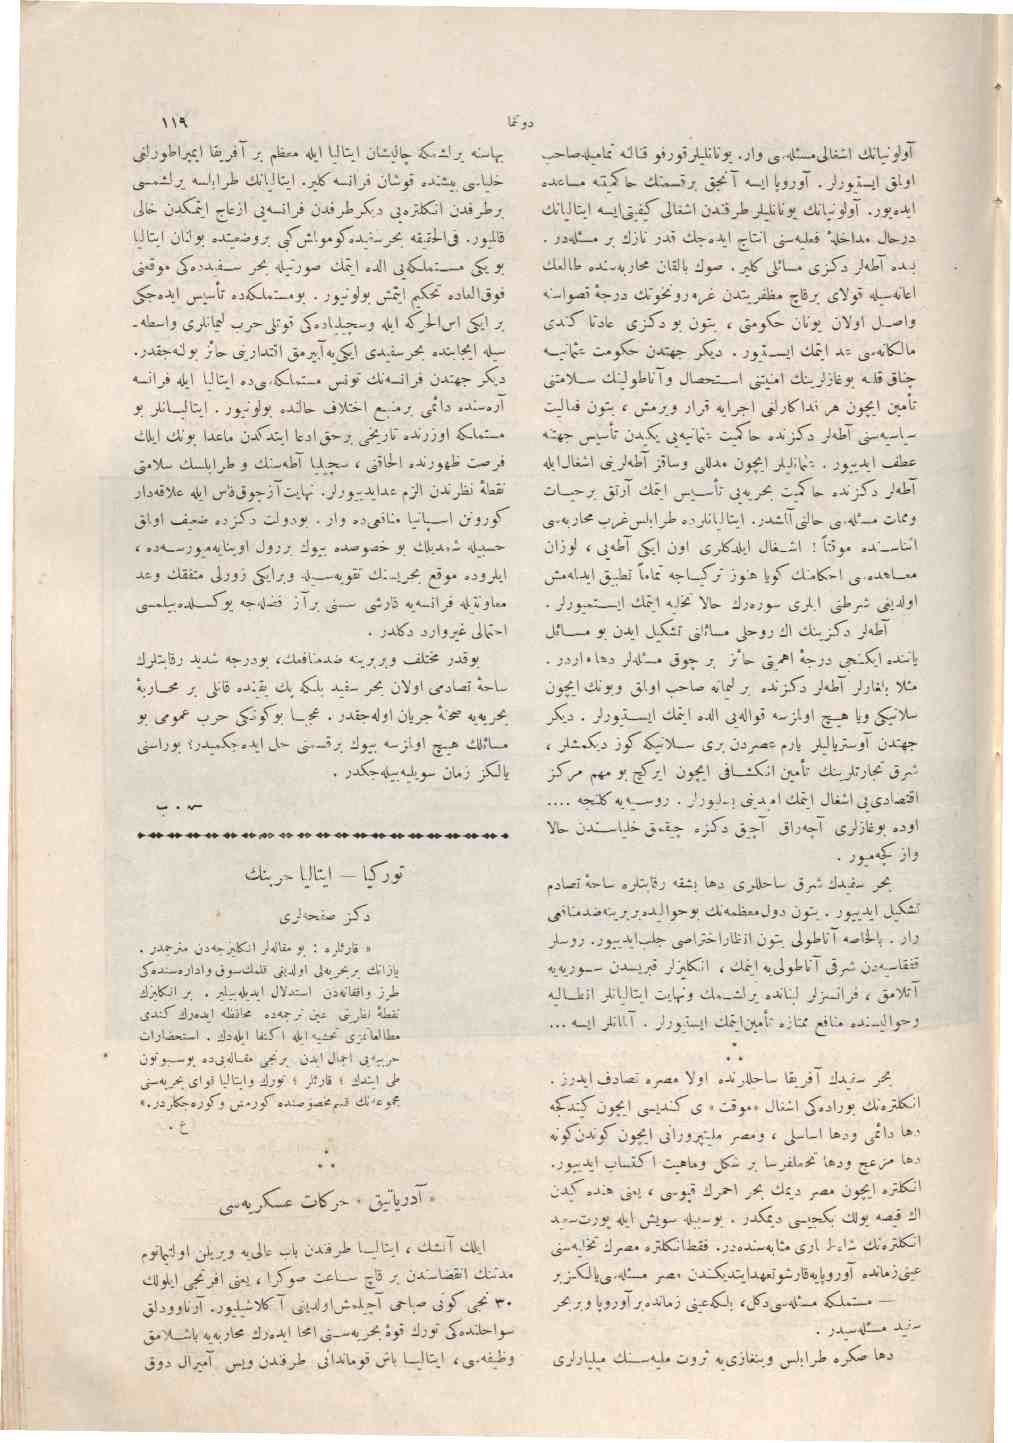 دونما
١١٩
آولونیانك اشغالی مسئله‌سی وار. یونانلیلر قورفو قنالنه تمامیله صاحب
اولمق ایستیورلر . آوروپا ایسه آنجق برقسمنك حاكمیتنه مساعده
ایده‌یور. آولونیانك یونانلیلر طرفندن اشغالی كیفیتی ایسه ایتالیانك
درحال مداخلهٔ فعلیه‌سنی انتاج ایده‌جك قدر نازك بر مسئله‌در .
بعده آطه‌لر دكزی مسائلی كلیر. صوك بالقان محاربه‌سنده طالعك
اعانه‌سیله قولای برقاچ مظفریتدن غره‌رونخوتك درجهٔ قصواسنه
واصل اولان یونان حكومتی ، بتون بو دكزی عادتا كندی
مالكانه‌سی عد ایتمك ایستیور . دیكر جهتدن حكومت عثمانیه
چناق قلعه بوغازلرینك امنیتنی استحصال وآناطولینك سلامتنی
تأمین ایچون هر فداكارلغی اجرایه قرار ویرمش ، بتون فعالیت
سیاسیه‌سنی آطه‌لر دكزنده حاكمیت عثمانیه‌یی یكیدن تأسیس جهتنه
عطف ایدییور . عثمانلیلر ایچون مدللی وساقز آطه‌لرینی اشغال ایله
آطه‌لر دكزنده حاكمیت بحریه‌یی تأسیس ایتمك آرتق برحیات
وممات مسئله‌سی حالنی آلمشدر. ایتالیانلرده طرابلس غرب محاربه‌سی
اثناسنده موقتاً ! اشغال ایلدكلری اون ایكی آطه‌یی ، لوزان
معاهده‌سی احكامنك كویا هنوز تركیاجه تماماً تطبیق ایدلمه‌مش
اولدیغی شرطنی ایلری سوره‌رك حالا تخلیه ایتمك ایستمیورلر .
آطه‌لر دكزینك اك روحلی مسائلنی تشكیل ایدن بو مسائل
یاننده ایكنجی درجهٔ اهمیتی حائز بر چوق مسئله‌لر دها واردر .
مثلا بلغارلر آطه‌لر دكزنده بر لیمانه صاحب اولمق وبونك ایچون
سلانیكی ویا هیچ اولمازسه قواله‌یی الده ایتمك ایستیورلر . دیكر
جهتدن آوستریالیلر یارم عصردن بری سلانیكه كوز دیكمشلر ،
شرق تجارتلرینك تأمین انكشافی ایچون ایركچ بو مهم مركز
اقتصادی‌یی اشغال ایتمك امیدینی بسلیورلر . روسیه‌یه كلنجه ....
اوده بوغازلری آچه‌رق آچیق دكزه چیقمق خلیاسندن حالا
واز كچه‌میور .
بحر سفیدك شرق ساحللری دها بشقه رقابتلره ساحهٔ تصادم
تشكیل ایدییور . بتون دول معظمه‌نك بوحوالیده بربرینه ضد منافعی
وار . بالخاصه آناطولی بتون انظار احتراصی جلب ایدییور. روسلر
قفقاسیه‌دن شرقی آناطولی‌یه ایتمك ، انكلیزلر قبریسدن سوریه‌یه
آتلامق ، فرانسزلر لبنانده یرلشمك ونهایت ایتالیانلر انطالیه
وحوالیسنده منافع ممتازه تأمین ایتمك ایستیورلر . آلمانلر ایسه ...
*
* *
بحر سفیدك آفریقا ساحللرنده اولا مصره تصادف ایدرز .
انكلتره‌نك بوراده‌كی اشغال «موقت» ی كندیسی ایچون كیتدكجه
دها دائمی ودها اساسلی ، ومصر ملیتپرورانی ایچون كوندن كونه
دها مزعج ودها تحملفرسا بر شكل وماهیت اكتساب ایدییور.
انكلتره ایچون مصر دیمك بحر احمرك قپوسی ، یعنی هنده كیدن
اك قیصه یولك بكجیسی دیمكدر . بوسبیله سویش ایله پورت سعید
انكلتره‌نك شاه‌طمارلری مثابه‌سنده‌در. فقط انكلتره مصرك تخلیه‌سنی
عینی زمانده آوروپایه قارشو تعهد ایتدیكندن مصر مسئله‌سی یالكز بر
— مستملكه مسئله‌سی دكل ، بلكه عینی زمانده بر آوروپا وبر بحر
سفید مسئله‌سیدر .
دها صكره طرابلس وبنغازی‌یه ثروت ملیه‌سنك میلیارلری
بهاسنه یرلشمكه چالیشان ایتالیا ایله معظم بر آفریقا ایمپراطورلغی
خلیاسی پیشنده قوشان فرانسه كلیر. ایتالیانك طرابلسه یرلشمسی
برطرفدن انكلتره‌یی دیكر طرفدن فرانسه‌یی ازعاج ایتمكدن خالی
قالمیور. فی‌الحقیقه بحر سفیده كومولمش كبی بروضعیتده بولنان ایتالیا
بو یكی مستملكه‌یی الده ایتمك صورتیله بحر سفیدده‌كی موقعنی
فوق‌العاده تحكیم ایتمش بولونیور . بومستملكه‌ده تأسیس ایده‌جكی
بر ایكی اس‌الحركه ایله وسچیلیاده‌كی قوتلی حرب لیمانلری واسطه‌-
سیله ایجابنده بحر سفیدی ایكی‌یه آییرمق اقتدارینی حائز بولنه‌جقدر.
دیكر جهتدن فرانسه‌نك تونس مستملكه‌سی‌ده ایتالیا ایله فرانسه
آره‌سنده دائمی برمنبع اختلاف حالنده بولونیور . ایتالیانلر بو
مستملكه اوزرنده تاریخی برحق ادعا ایتدكدن ماعدا بونك ایلك
فرصت ظهورنده الحاقنی ، سچیلیا آطه‌سنك و طرابلسك سلامتی
نقطهٔ نظرندن الزم عد ایدییورلر. نهایت آز چوق فاس ایله علاقه‌دار
كورونن اسپانیا منافعی‌ده وار . بودولت دكزده ضعیف اولمق
حسبیله شمدیلك بو خصوصده بیوك بررول اوینایه‌میورسه‌ده ،
ایلروده موقع بحریسنك تقویه‌سیله وبرایكی زورلی متفقك وعد
معاونتیله فرانسه‌یه قارشی سسنی برآز فضله‌جه یوكسلده‌بیلمسی
احتمالی غیروارد دكلدر .
بوقدر مختلف وبربرینه ضد منافعك، بودرجه شدید رقابتلرك
ساحهٔ تصادمی اولان بحر سفید بلكه پك یقینده قانلی بر محاربهٔ
بحریه‌یه صحنهٔ جریان اوله‌جقدر. عجبا بوكونكی حرب عمومی بو
مسائلك هیچ اولمازسه بیوك برقسمنی حل ایده‌جكمیدر؟ بوراسنی
یالكز زمان سویلیه‌بیله‌جكدر .
س . ب
توركیا — ایتالیا حربنك
دكز صفحه‌لری
« قارئلره : بو مقاله‌لر انكلیزجه‌دن مترجمدر .
یازانك بربحریه‌لی اولدیغی قلمك سوق واداره‌سنده‌كی
طرز واقفانه‌دن استدلال ایدیله‌بیلیر . بر انكلیزك
نقطهٔ نظرینی عین ترجمه‌ده محافظه ایده‌رك كندی
مطالعاتمزی تحشیه ایله اكتفا ایله‌دك . استحضارات
حربیه‌یی اجمال ایدن برنجی مقاله‌یی‌ده بوسبوتون
طی ایتدك ؛ قارئلر ؛ تورك وایتالیا قوای بحریه‌سنی
مجموعه‌نك قسم مخصوصنده كورمش وكوره‌جكلردر.»
ع .
*
* *
« آدریاتیق » حركات عسكریه‌سی
ایلك آتشك ، ایتالیا طرفندن باب عالی‌یه ویریلن اولتیماتوم
مدتنك انقضاسندن بر قاچ ساعت صوكرا ، یعنی افرنجی ایلولك
٣٠ نجی كونی صباحی آچیلمش اولدیغی آكلاشیلیور. آرناوودلق
سواحلنده‌كی تورك قوهٔ بحریه‌سنی امحا ایده‌رك محاربه‌یه باشلامق
وظیفه‌سی، ایتالیا باش قوماندانی طرفندن ویس آمیرال دوق